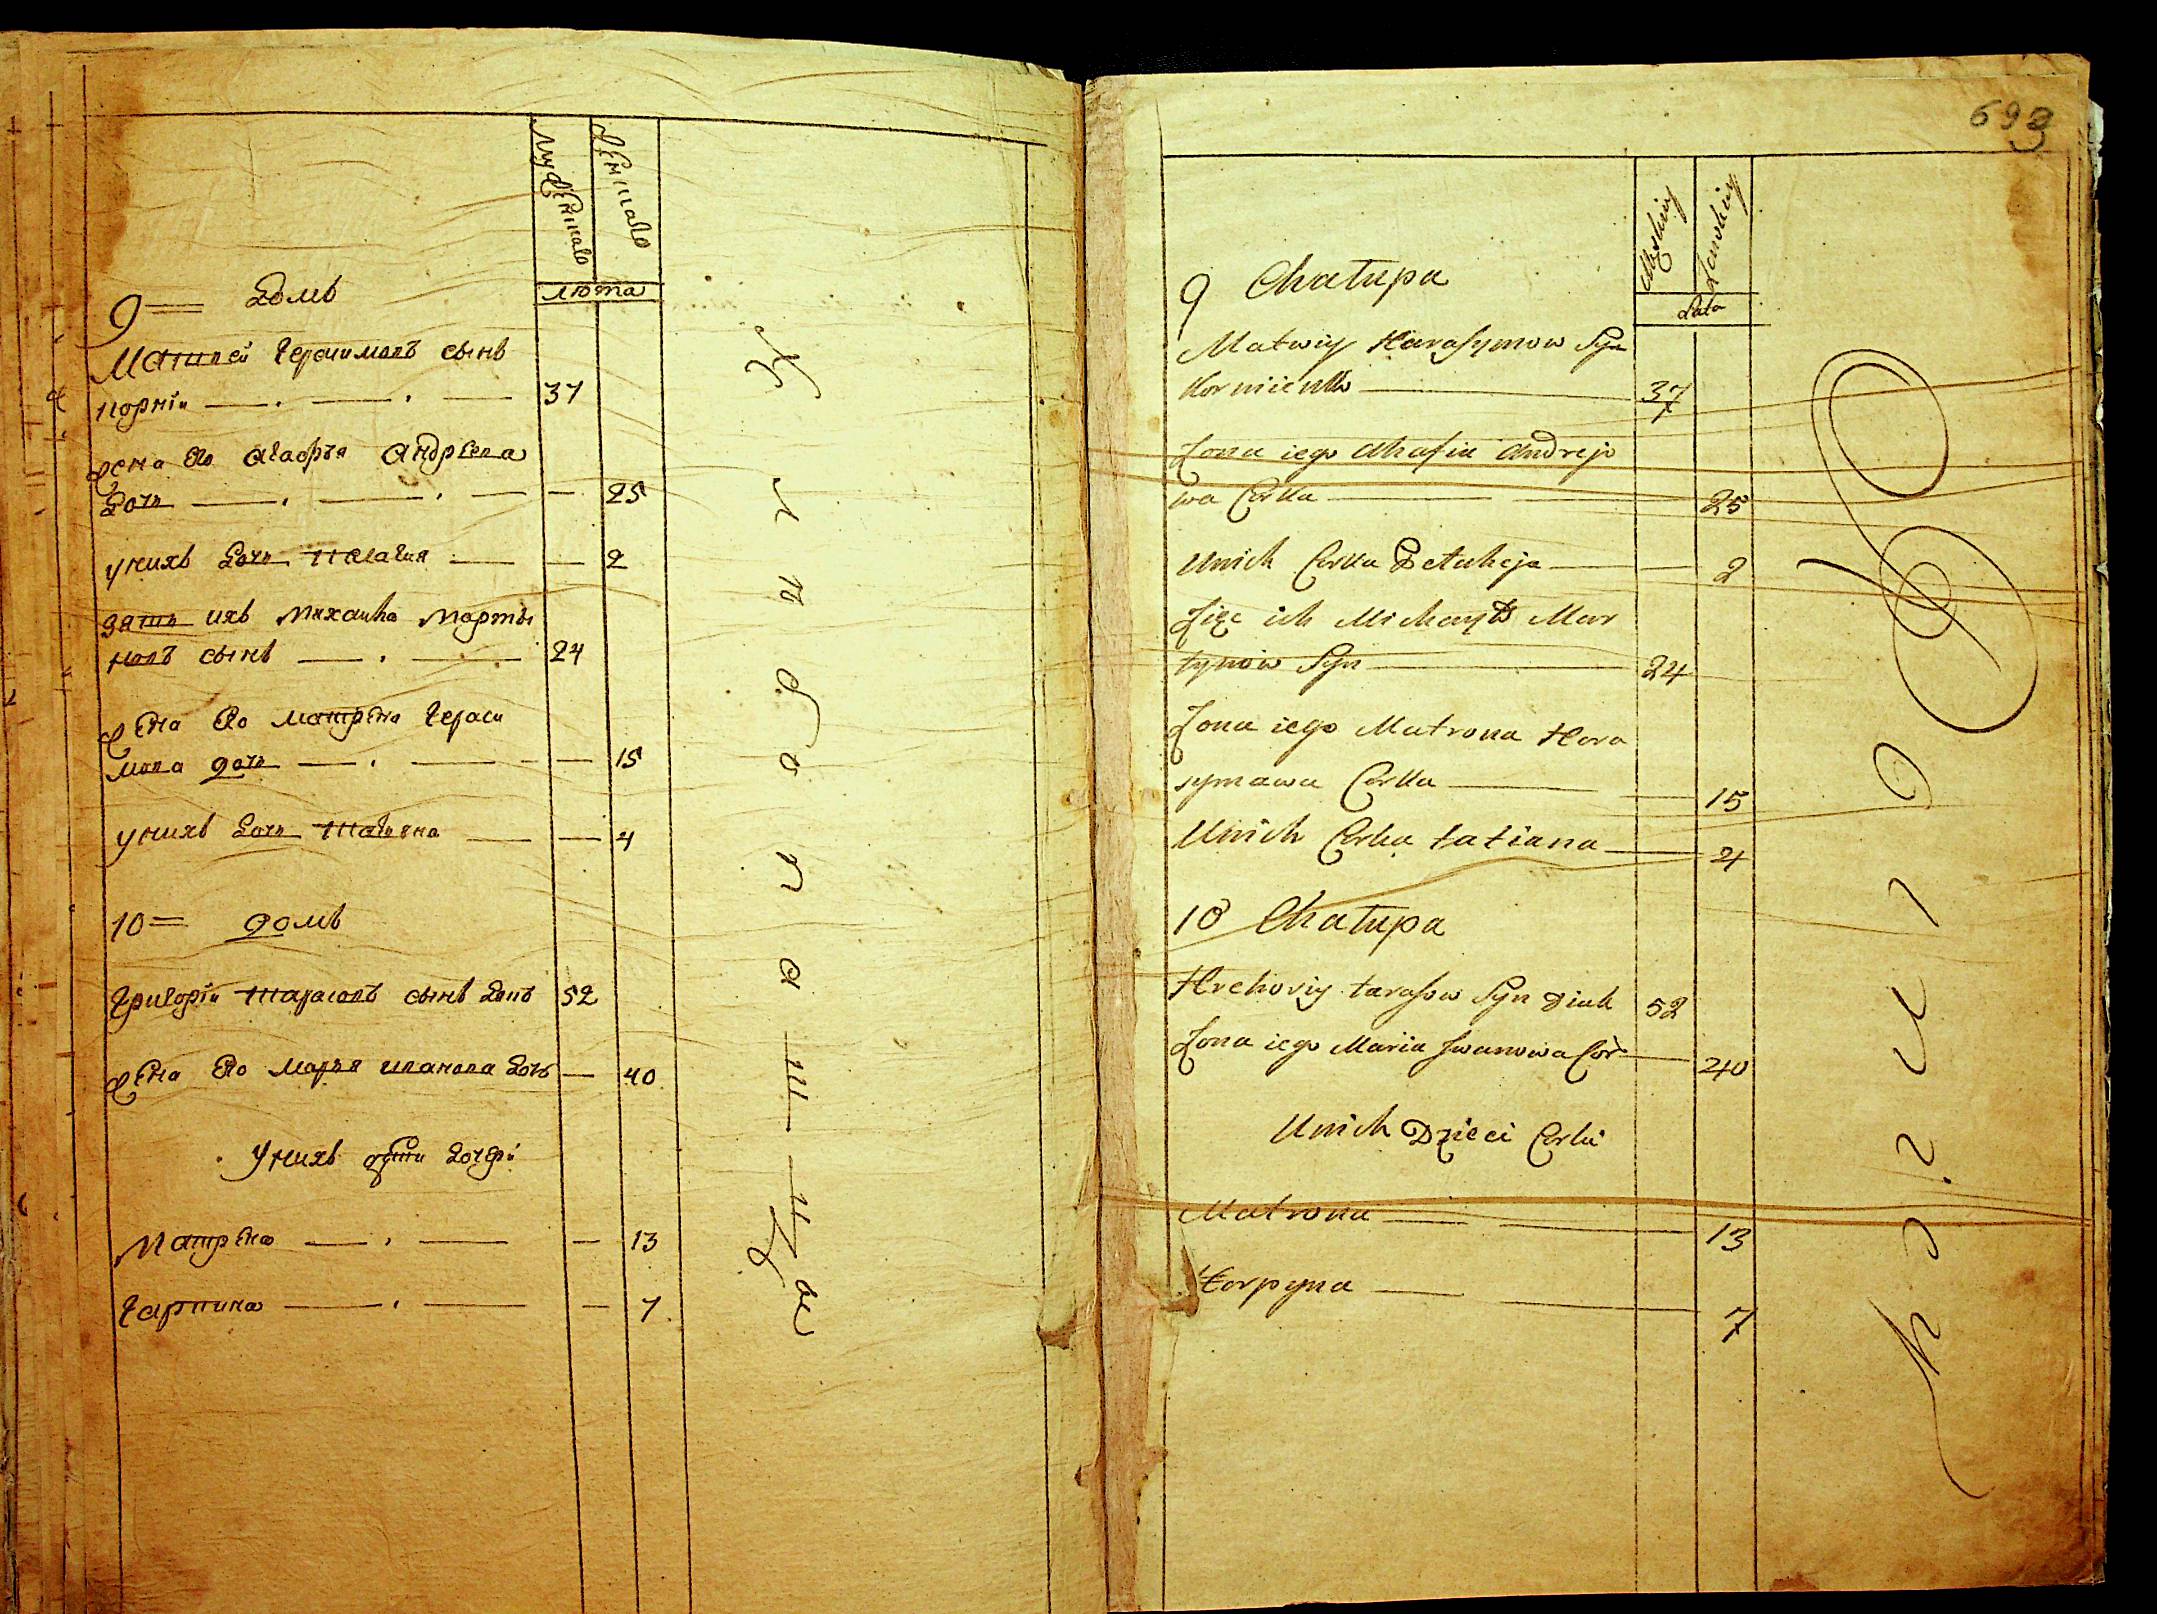 мужеска
женска
люта
9 домъ
Матвей Герасимовъ сынъ
Корній 37
жена его Агафья Андреева
дочь 25
у нихъ дочь Палагия 2
зять ихъ Михайла Марты
новъ сынъ 24
жена его Матрена Гераси
мова дочь 15
у нихъ дочь Татьяна 4
10 домъ
Григорій Тарасовъ сынъ 52
жена его Марья Иванова дочь 40
У нихъ дети дочери
Матрена 13
Гарпина 7
693
Męskiey
Żenskiey
Lata
9 Chałupa
Matwiy Harasymow Syn
Kornieienko 37
Żona iego Ahafia Andrejo
wa Corka 25
Unich Corka Pełaheja 2
Zięc ich Michayło Mar
tynow Syn 24
Żona iego Matrona Hera
symawa Corka 15
Unich Corka Tatiana 4
10 Chałupa
Hrehoriy Tarasow Syn Diak 52
Żona iego Maria Iwanowa Cor 40
Unich Dzieci Corki
Matrona 13
Horpyna 7